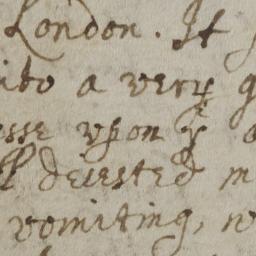 London. It
into a very g
esse vpon y
deiected m
vomiting, w